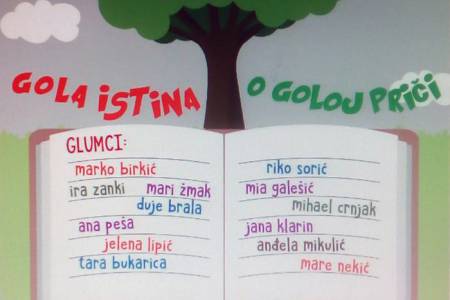 GOLA ISTINA
O GOLOJ PRIČI
GLUMCI:
marko birkić
ira zanki mari žmak
duje brala
ana peša
jelena lipić
tara bukarica
riko sorić
mia galešić
mihael crnjak
jana klarin
anđela mikulić
mare nekić